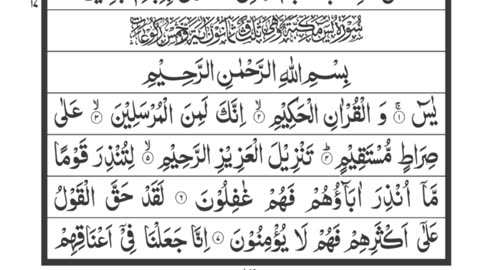 سُوْرَةُ يٰسٓ مَكِّيَّةٌ وَّهِيَ ثَلٰثٌ وَّثَمَانُوْنَ اٰيَةً وَّخَمْسُ رُكُوْعَاتٍ
بِسْمِ اللّٰهِ الرَّحْمٰنِ الرَّحِيْمِ
يٰسٓ ۚ﴿۱﴾ وَ الْقُرْاٰنِ الْحَكِيْمِ ۙ﴿۲﴾ اِنَّكَ لَمِنَ الْمُرْسَلِيْنَ ۙ﴿۳﴾ عَلٰى
صِرَاطٍ مُّسْتَقِيْمٍ ؕ﴿۴﴾ تَنْزِيْلَ الْعَزِيْزِ الرَّحِيْمِ ۙ﴿۵﴾ لِتُنْذِرَ قَوْمًا
مَّاۤ اُنْذِرَ اٰبَآؤُهُمْ فَهُمْ غٰفِلُوْنَ ﴿۶﴾ لَقَدْ حَقَّ الْقَوْلُ
عَلٰۤى اَكْثَرِهِمْ فَهُمْ لَا يُؤْمِنُوْنَ ﴿۷﴾ اِنَّا جَعَلْنَا فِيْۤ اَعْنَاقِهِمْ